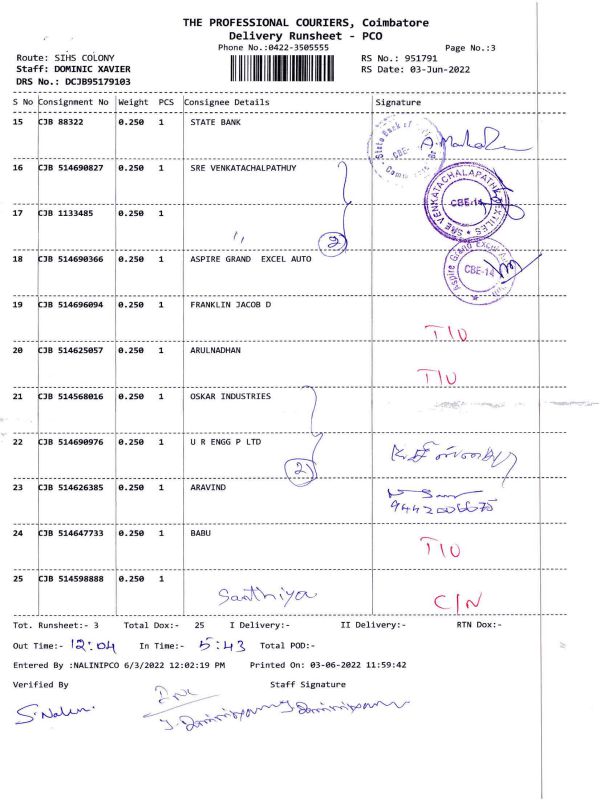 THE PROFESSIONAL COURIERS, Coimbatore
Delivery Runsheet - PCO
Phone No.:0422-3505555
Page No.:3
Route: SIHS COLONY
RS No.: 951791
Staff: DOMINIC XAVIER
RS Date: 03-Jun-2022
DRS No.: DCJB95179103
S No Consignment No Weight PCS Consignee Details Signature
15 CJB 88322 0.250 1 STATE BANK
State Bank of
CBE-
16 CJB 514690827 0.250 1 SRE VENKATACHALPATHUY
SRE VENKATACHALAPATHE TEXTILES
CBE-14
17 CJB 1133485 0.250 1 〃
2
18 CJB 514690366 0.250 1 ASPIRE GRAND EXCEL AUTO
Aspire Grand Excel
CBE-14
19 CJB 514696094 0.250 1 FRANKLIN JACOB D
T/U
20 CJB 514625057 0.250 1 ARULNADHAN
T/U
21 CJB 514568016 0.250 1 OSKAR INDUSTRIES
22 CJB 514690976 0.250 1 U R ENGG P LTD
2
23 CJB 514626385 0.250 1 ARAVIND
9442006675
24 CJB 514647733 0.250 1 BABU
T/U
25 CJB 514598888 0.250 1 Santhiya C/N
Tot. Runsheet:- 3 Total Dox:- 25 I Delivery:- II Delivery:- RTN Dox:-
Out Time:- 12:04 In Time:- 5:43 Total POD:-
Entered By :NALINIPCO 6/3/2022 12:02:19 PM Printed On: 03-06-2022 11:59:42
Verified By Staff Signature
S. Nalini